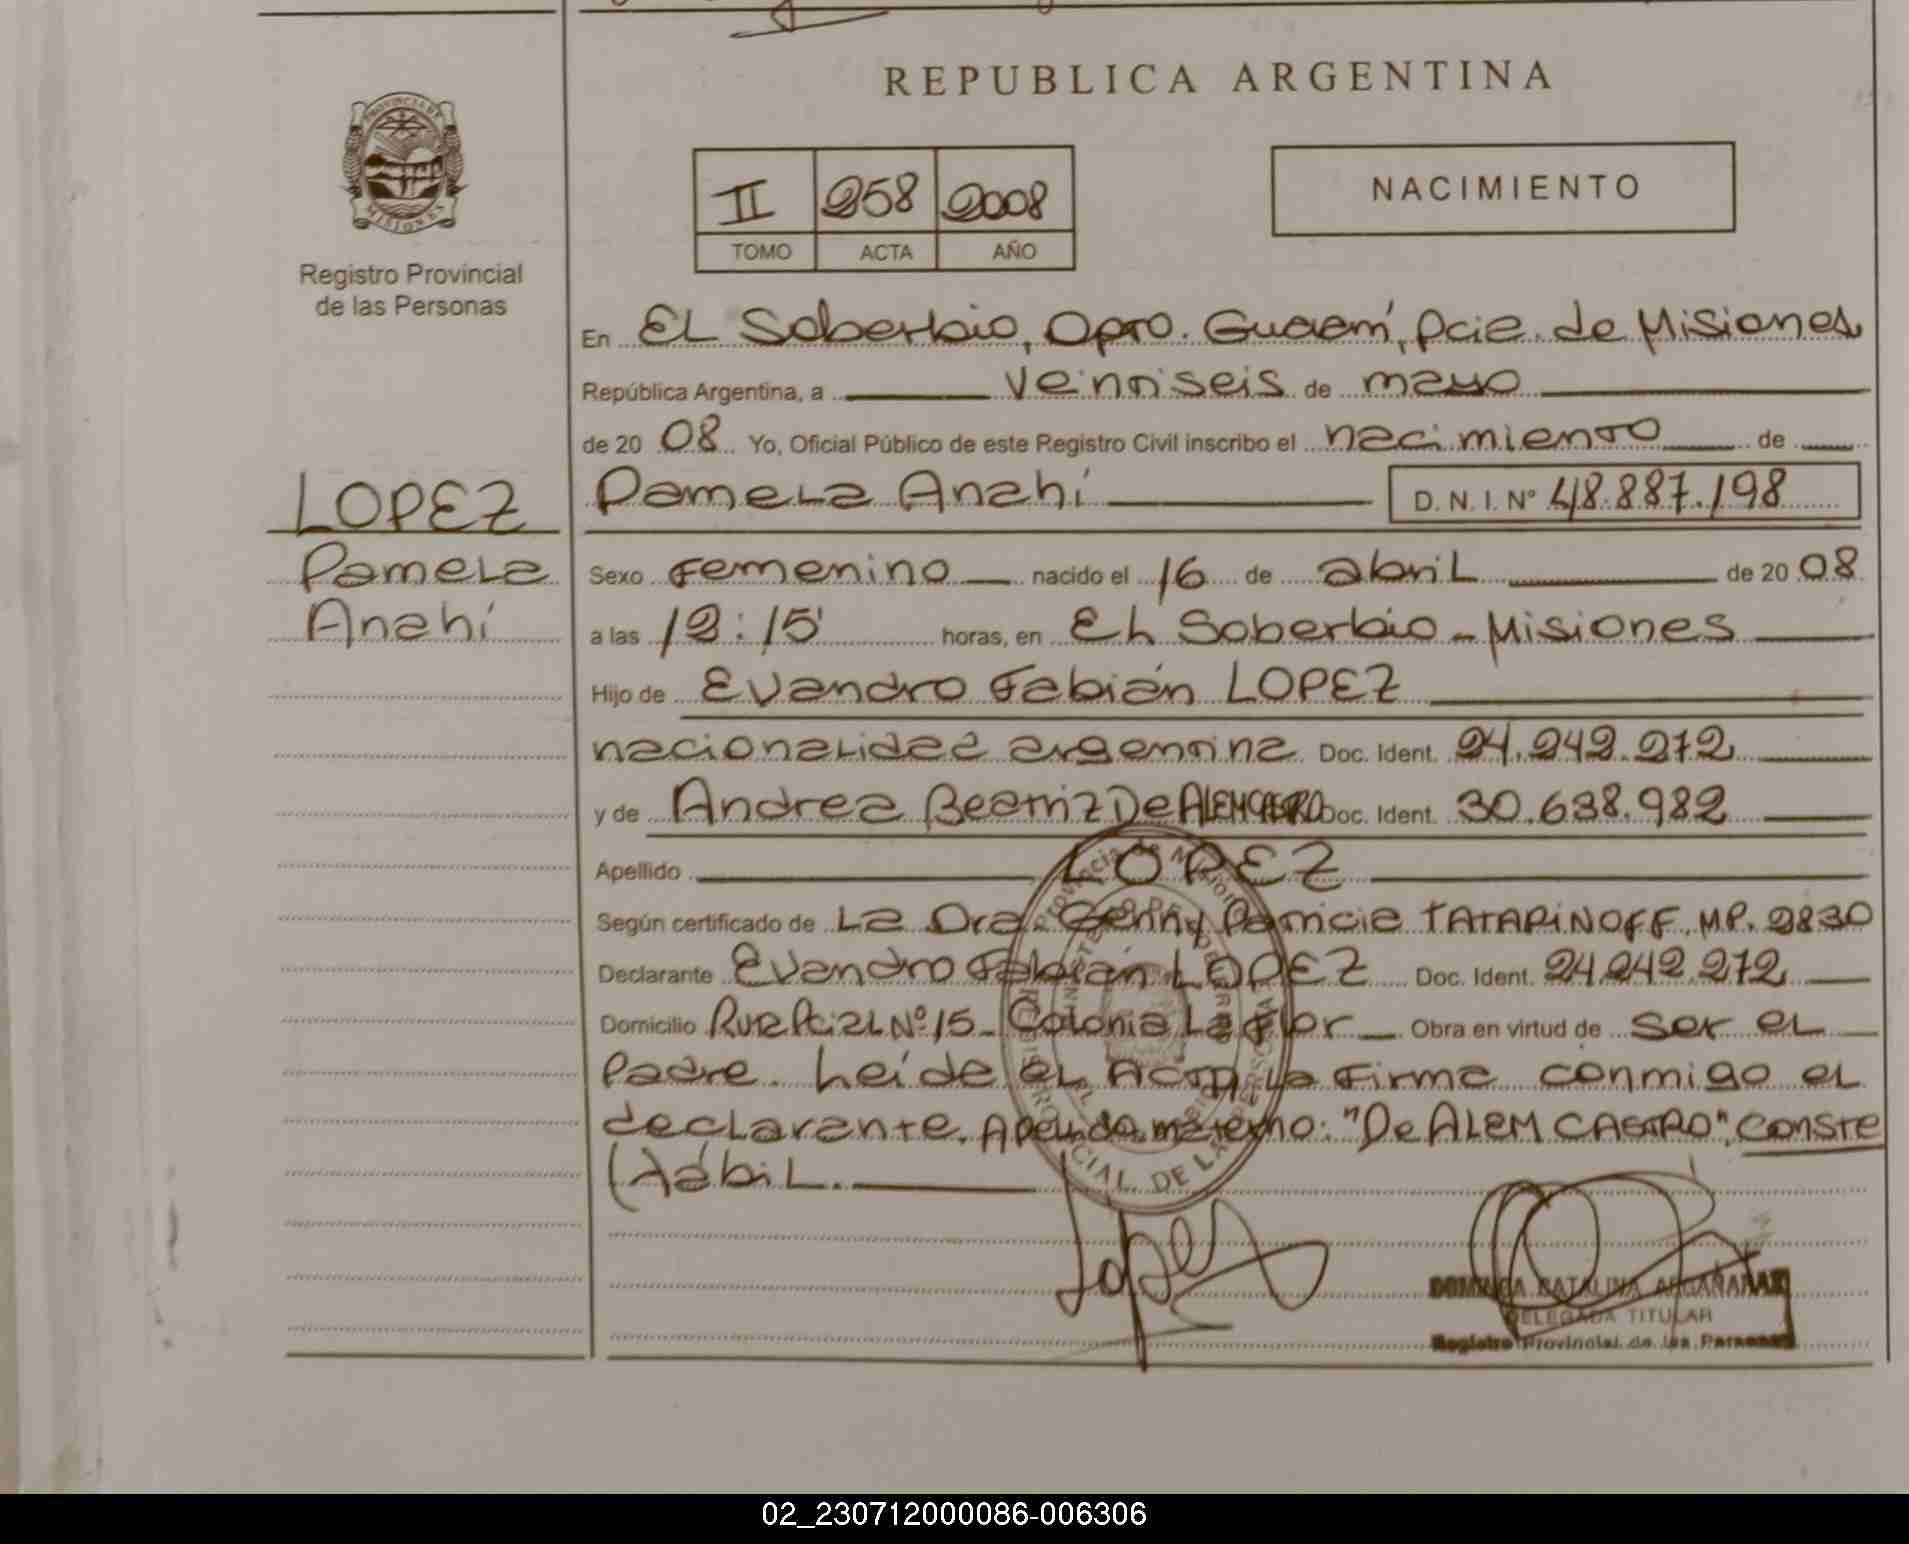 REPUBLICA ARGENTINA
II 258 2008
TOMO ACTA AÑO
NACIMIENTO
PROVINCIA DE MISIONES
Registro Provincial
de las Personas
En EL Soberbio, Dpto. Guaraní, Pcia. de Misiones
República Argentina, a veintiseis de mayo
de 20 08 Yo, Oficial Público de este Registro Civil inscribo el nacimiento de
LOPEZ
Pamela
Anahí
Pamela Anahí D. N. I. Nº 48.887.198
Sexo Femenino nacido el 16 de abril de 20 08
a las 12:15' horas, en EL Soberbio - Misiones
Hijo de Evandro Fabián LOPEZ
nacionalidad argentina Doc. Ident. 24.242.272
y de Andrea Beatriz De ALEMCASTRO Doc. Ident. 30.638.982
Apellido LOPEZ
Según certificado de La Dra. Genny Patricia TATARINOFF, M.P. 2830
Declarante Evandro Fabián LOPEZ Doc. Ident. 24.242.272
Domicilio Ruta Pcial Nº 15 - Colonia La Flor Obra en virtud de ser el
Padre. Leída el Acta, la firma conmigo el
declarante. Apellido materno: "De ALEM CASTRO", Conste
Lopez
CATALINA
DELEGADA TITULAR
Registro Provincial de las Personas
02_230712000086-006306